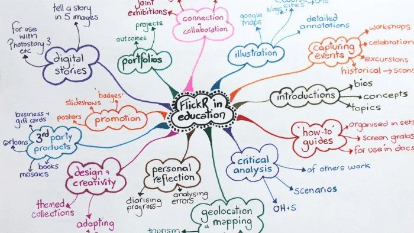 joint
exhibitions
connection
&
collaboration
google
maps
detailed
annotations
tell a story
in 5 images
for use
with
Photostory 3
etc
digital
stories
projects
outcomes
portfolios
illustration
capturing
events
workshops
celebrations
excursions
historical
bios
concepts
topics
introductions
FlickR in
education
'badges'
slideshows
posters
promotion
business +
gift cards
3rd party
products
books
mosaics
'how-to'
guides
organised in sets
screen grabs
for use in docs
design &
creativity
themed
collections
adapting
personal
reflection
diarising
progress
analysing
errors
critical
analysis
of others work
scenarios
OH+S
geolocation
& mapping
tourism